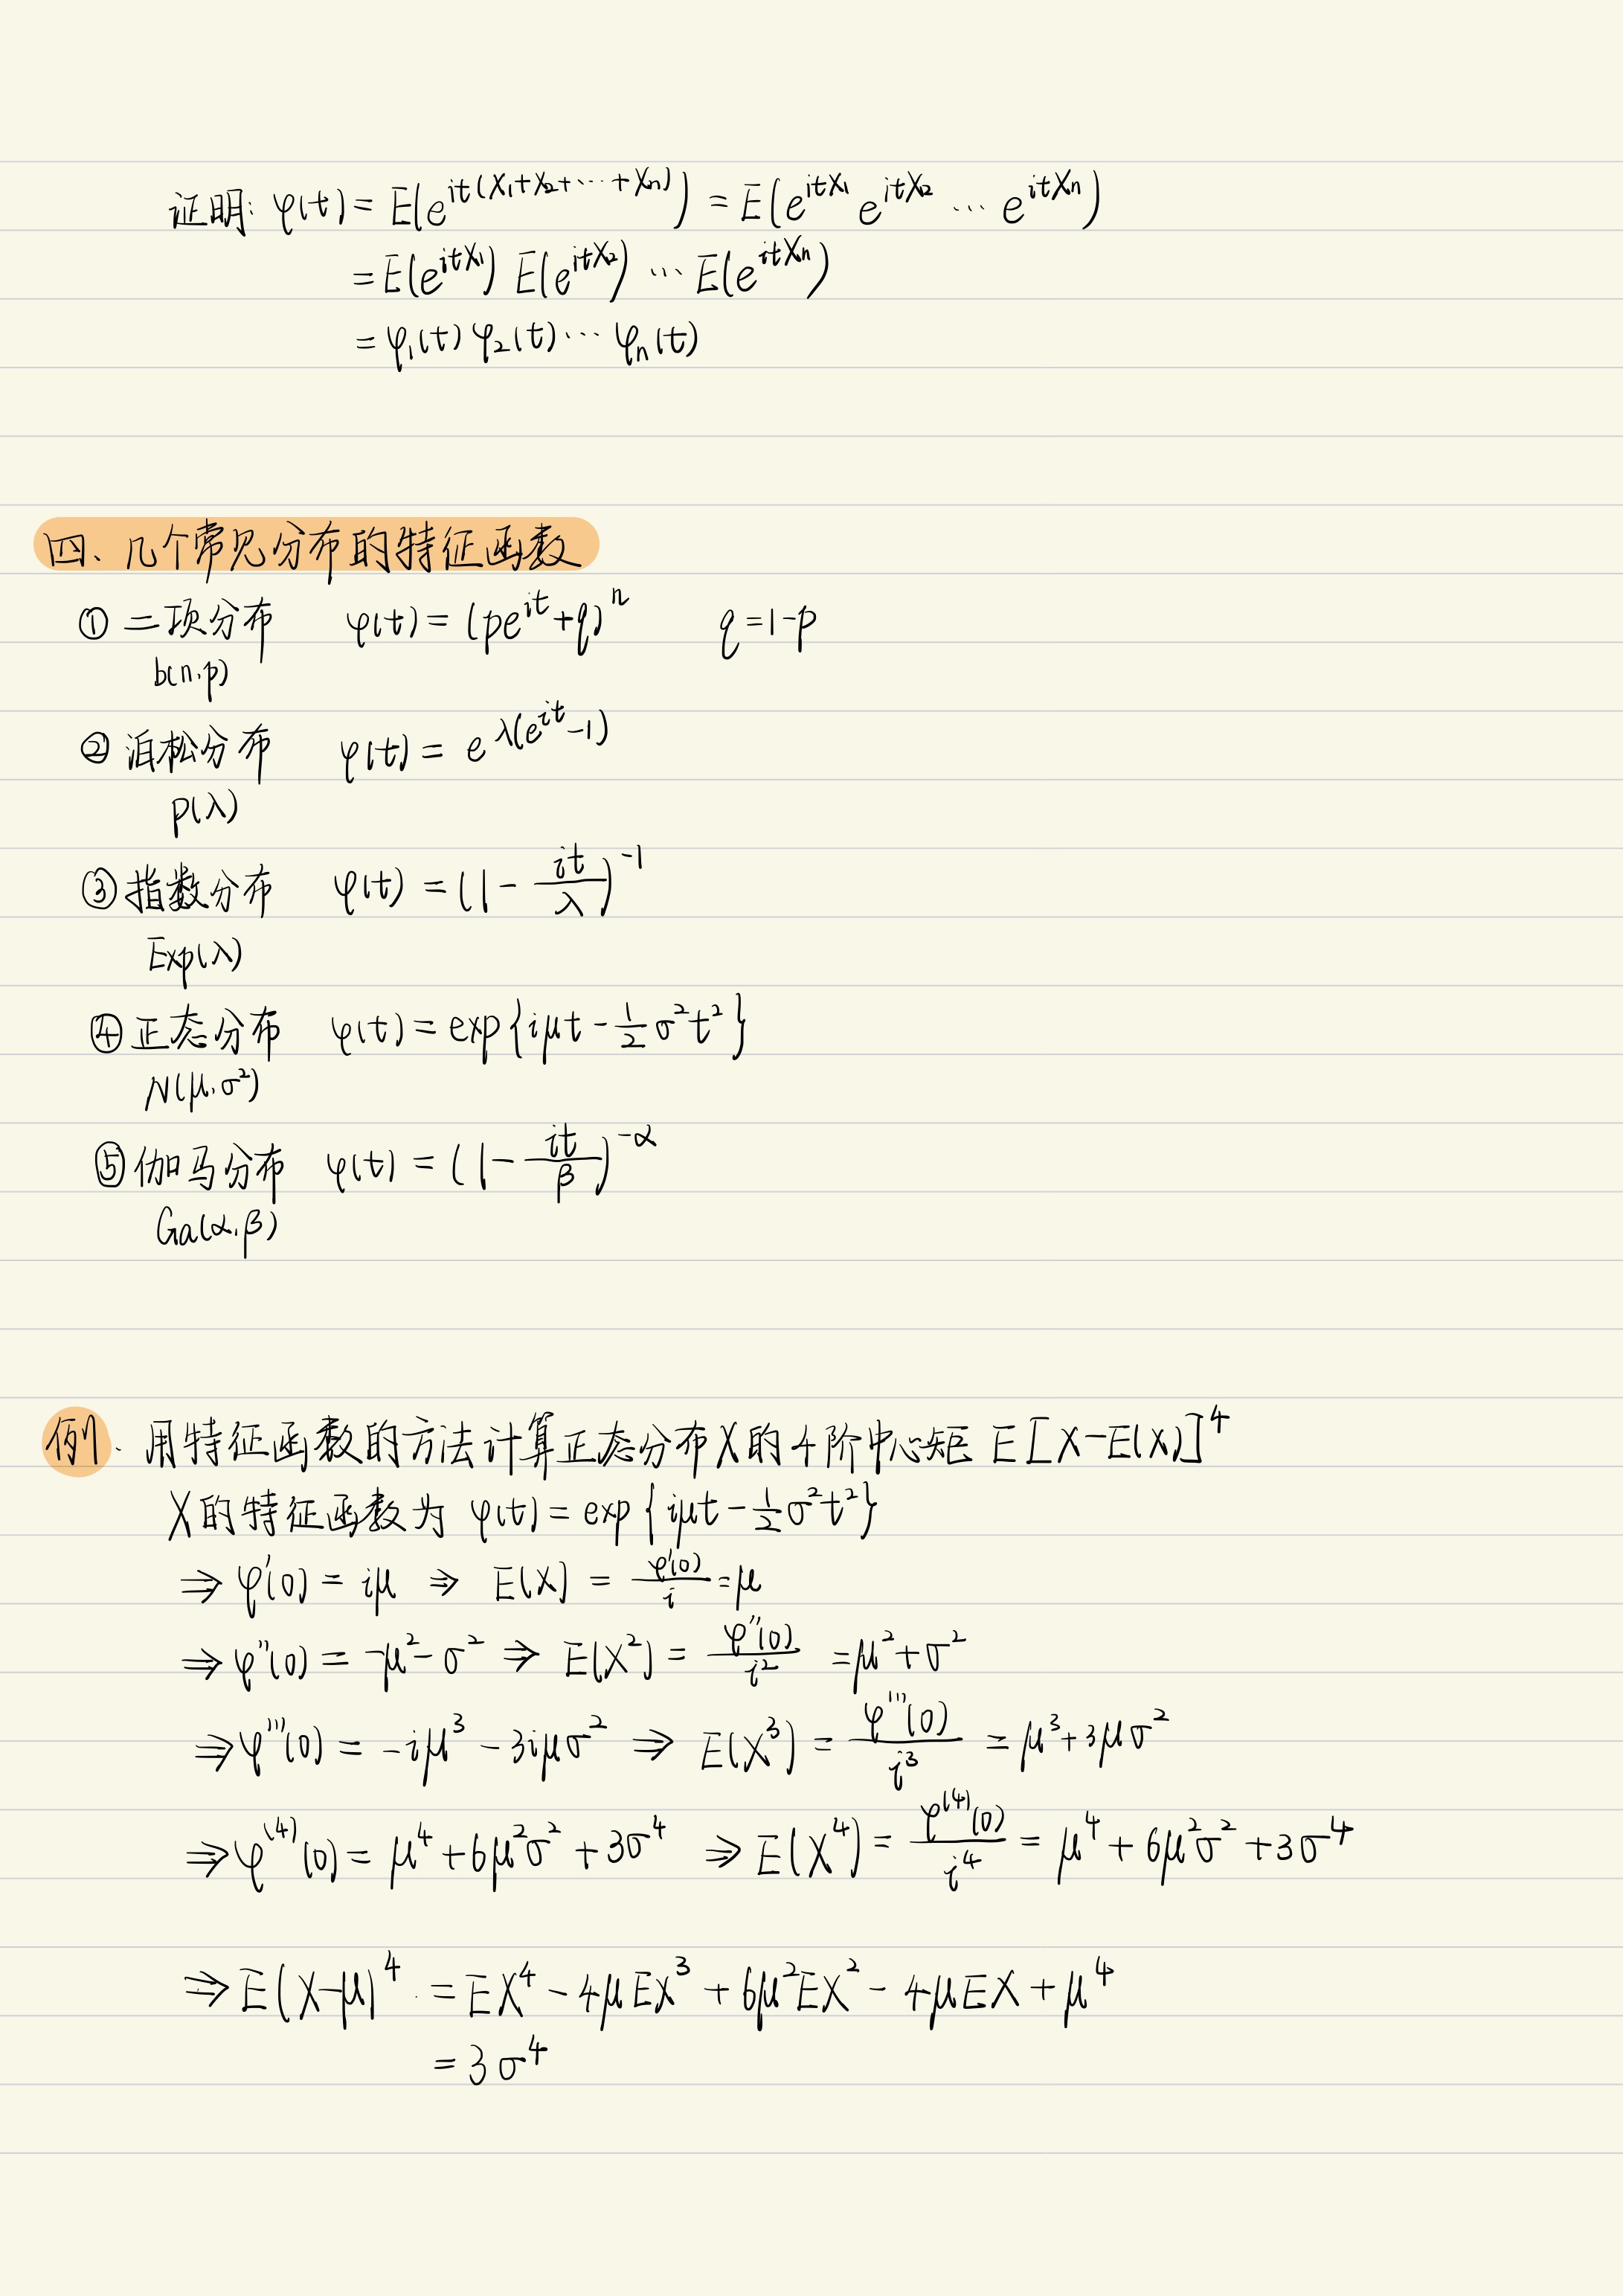 证明: φ(t) = E(e^{it(X₁+X₂+⋯+Xₙ)}) = E(e^{itX₁} e^{itX₂} ⋯ e^{itXₙ})
= E(e^{itX₁}) E(e^{itX₂}) ⋯ E(e^{itXₙ})
= φ₁(t) φ₂(t) ⋯ φₙ(t)
四、几个常见分布的特征函数
① 二项分布 φ(t) = (pe^{it}+q)ⁿ q = 1-p
b(n,p)
② 泊松分布 φ(t) = e^{λ(e^{it}-1)}
p(λ)
③ 指数分布 φ(t) = (1 - \frac{it}{λ})^{-1}
Exp(λ)
④ 正态分布 φ(t) = exp{iμt - \frac{1}{2}σ²t²}
N(μ,σ²)
⑤ 伽马分布 φ(t) = (1 - \frac{it}{β})^{-α}
Ga(α,β)
例. 用特征函数的方法计算正态分布X的4阶中心矩 E[X-E(X)]⁴
X的特征函数为 φ(t) = exp{iμt - \frac{1}{2}σ²t²}
⇒ φ'(0) = iμ ⇒ E(X) = \frac{φ'(0)}{i} = μ
⇒ φ''(0) = -μ² - σ² ⇒ E(X²) = \frac{φ''(0)}{i²} = μ² + σ²
⇒ φ'''(0) = -iμ³ - 3iμσ² ⇒ E(X³) = \frac{φ'''(0)}{i³} = μ³ + 3μσ²
⇒ φ^{(4)}(0) = μ⁴ + 6μ²σ² + 3σ⁴ ⇒ E(X⁴) = \frac{φ^{(4)}(0)}{i⁴} = μ⁴ + 6μ²σ² + 3σ⁴
⇒ E(X-μ)⁴ = EX⁴ - 4μEX³ + 6μ²EX² - 4μEX + μ⁴
= 3σ⁴